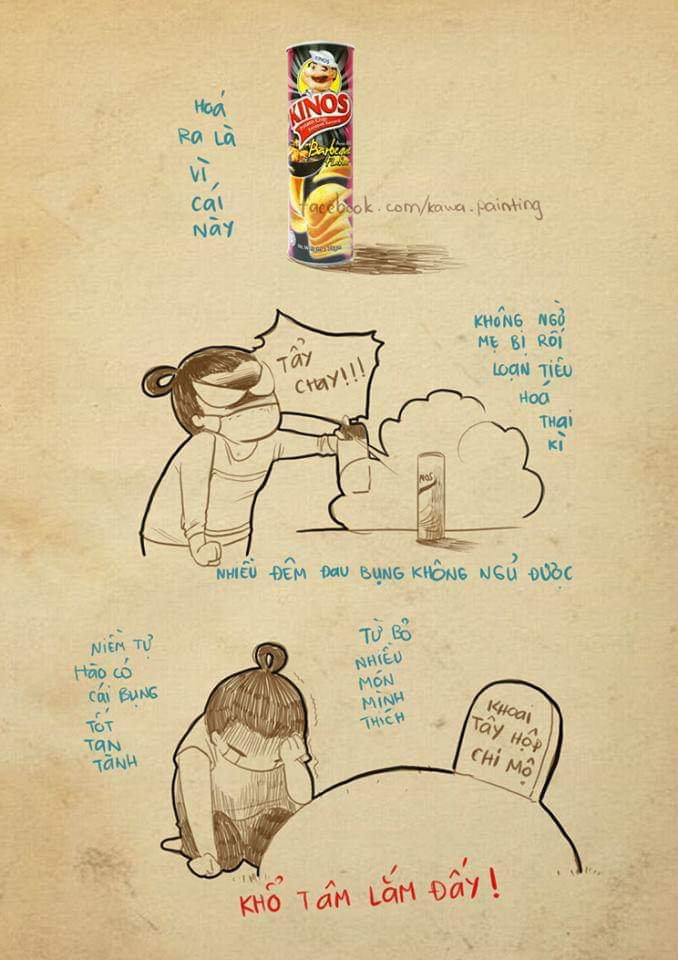 Hoá
Ra là
vì
cái
này
KINOS
KINOS
Barbecue
Flavour
facebook.com/kawa.painting
TẨY
CHAY!!!
KHÔNG NGỜ
MẸ BỊ RỐI
LOẠN TIÊU
HOÁ
THAI
KÌ
NOS
NHIỀU ĐÊM ĐAU BỤNG KHÔNG NGỦ ĐƯỢC
NIỀM TỰ
HÀO CÓ
CÁI BỤNG
TỐT
TAN
TÀNH
TỪ BỎ
NHIỀU
MÓN
MÌNH
THÍCH
KHOAI
TÂY HỘP
CHI MỘ
KHỔ TÂM LẮM ĐẤY!